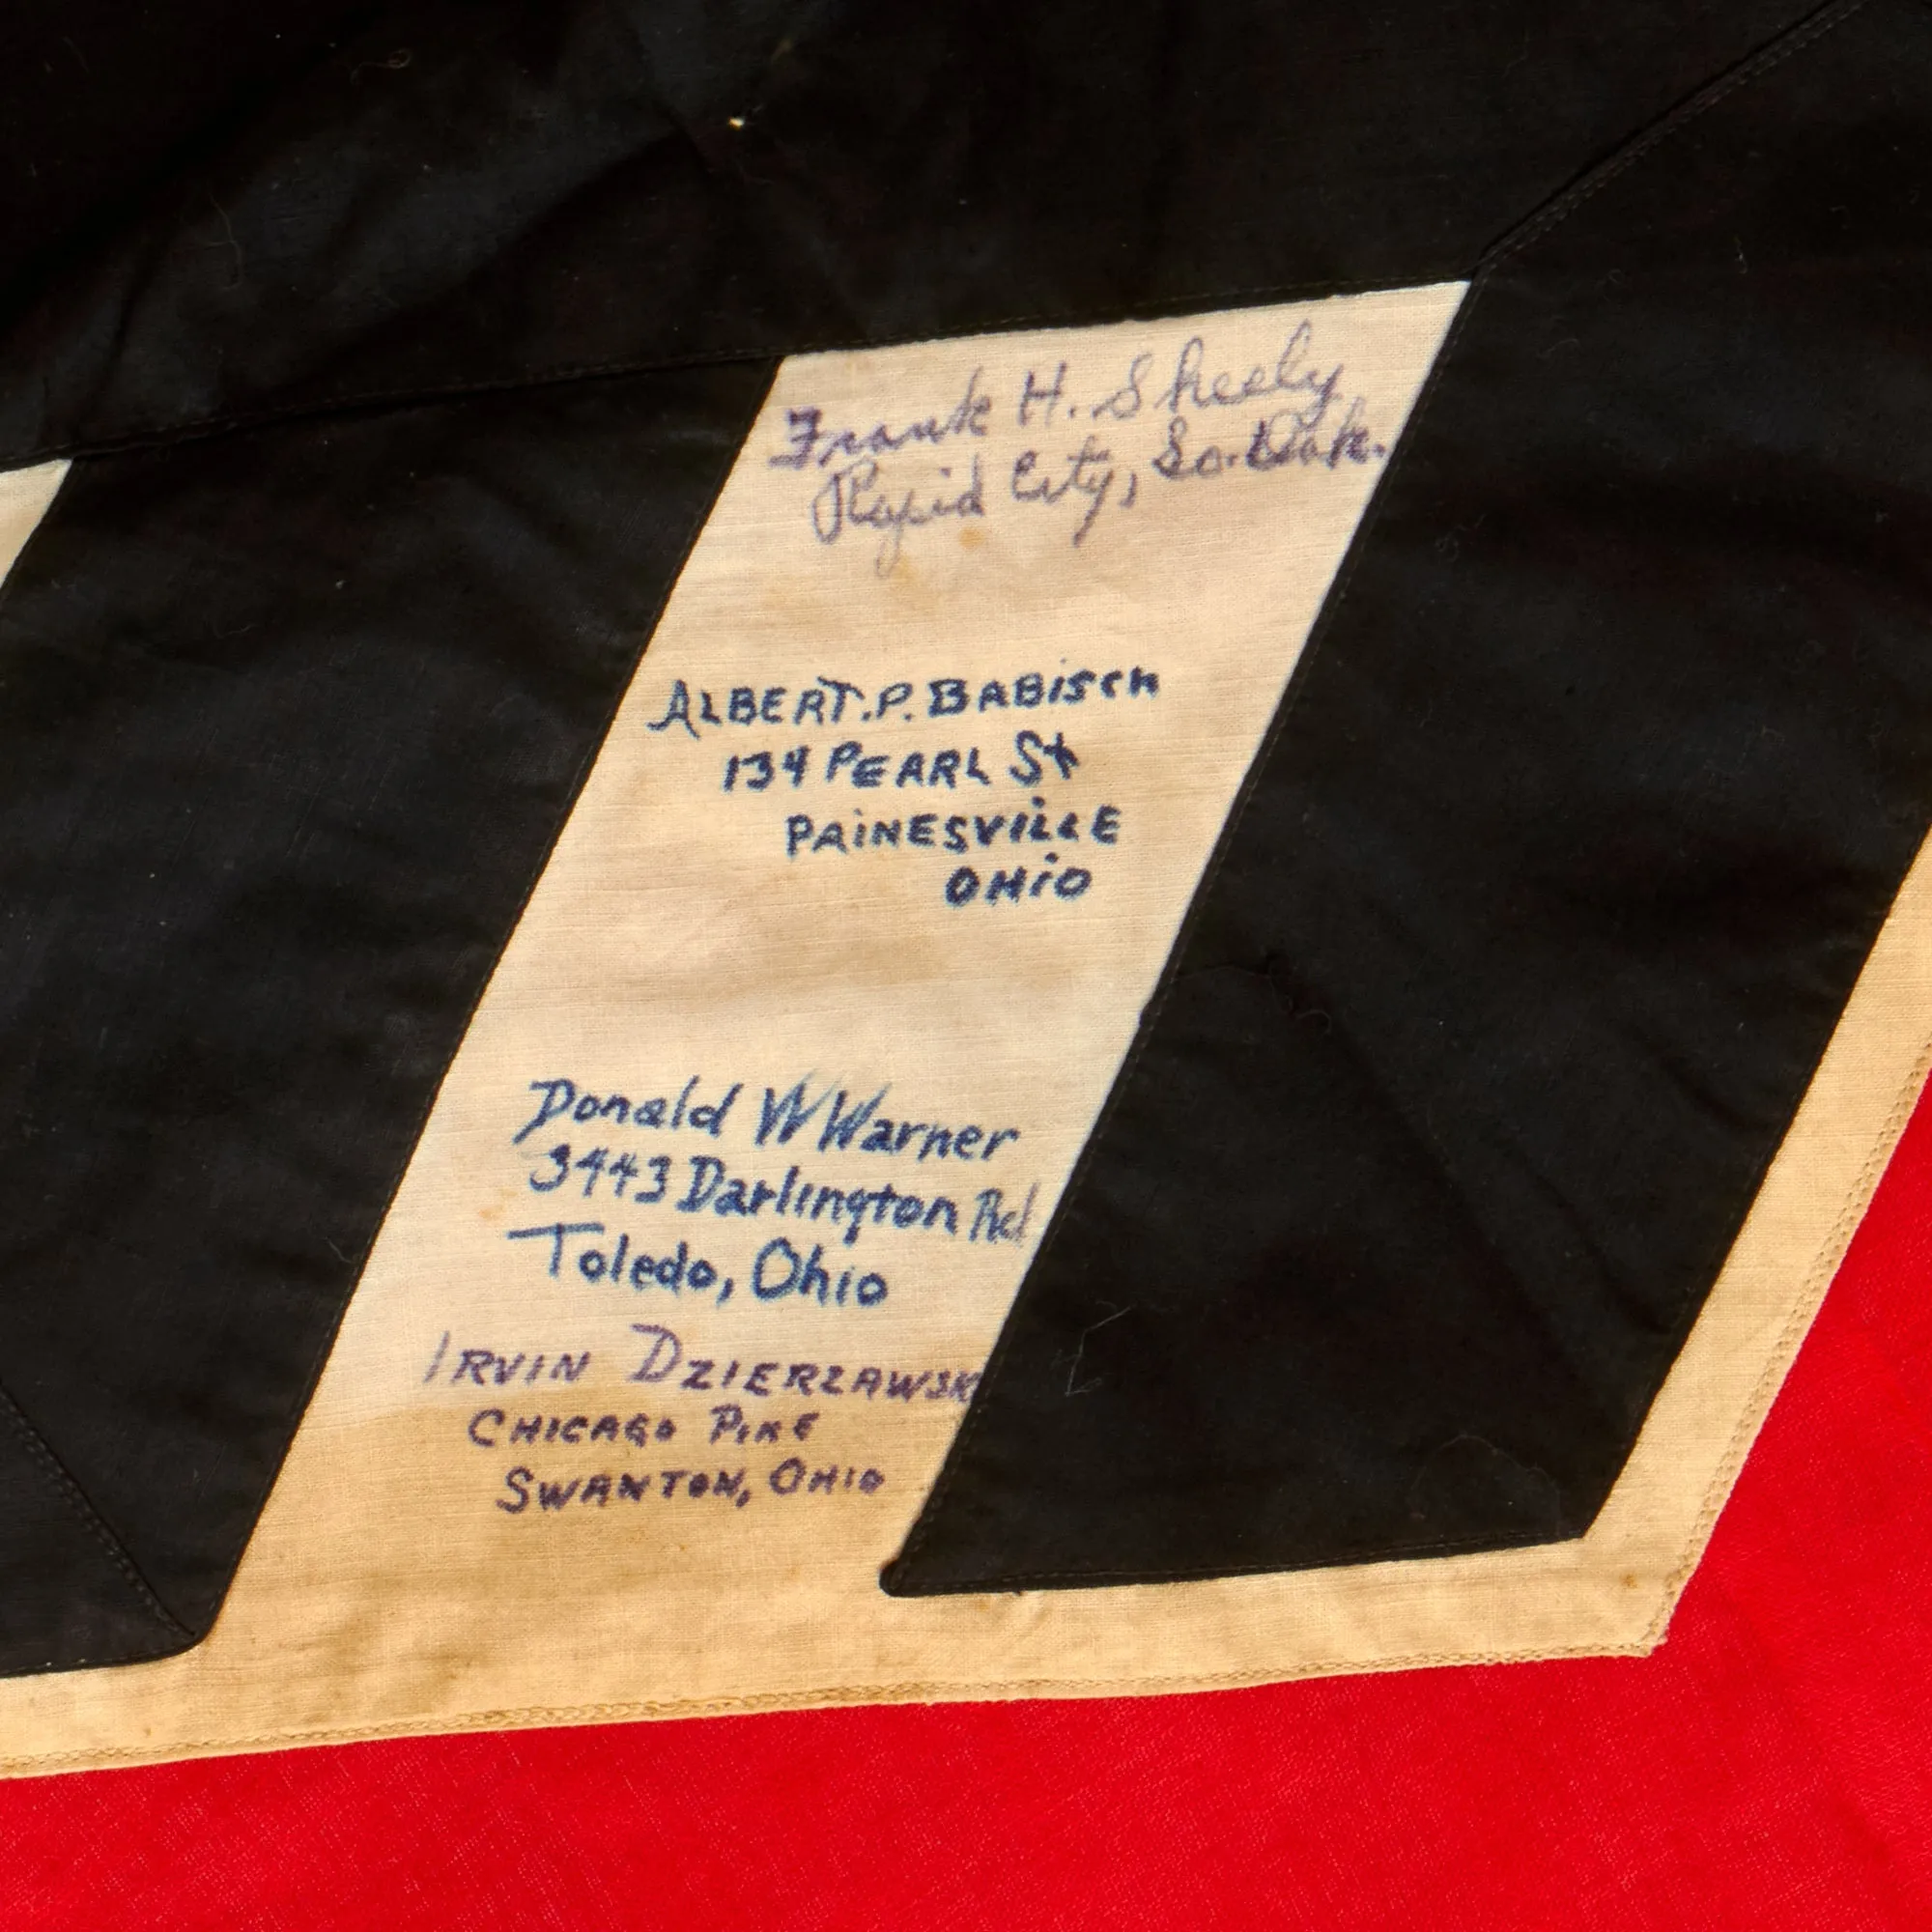 Frank H. Sheely
Rapid City, So. Dak.
ALBERT.P. BABISCH
134 PEARL St
PAINESVILLE
OHIO
Donald W Warner
3443 Darlington Rd
Toledo, Ohio
IRVIN DZIERZAWSKI
CHICAGO PIKE
SWANTON, OHIO